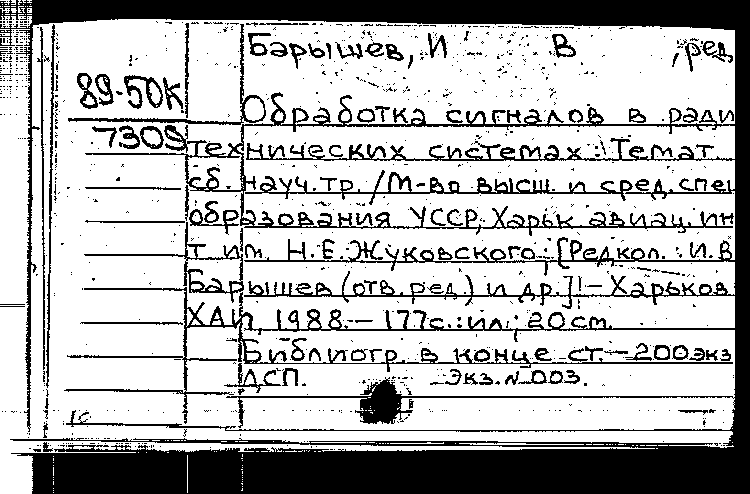 Барышев, И В , ред
89-50К
7309
Обработка сигналов в ради
технических системах: Темат
сб. науч. тр. / М-во высш. и сред. спец
образования УССР, Харьк авиац. ин
т им. Н.Е. Жуковского; [Редкол.: И.В
Барышев (отв. ред.) и др.]! — Харьков
ХАИ, 1988. — 177с.: ил.; 20 см.
Библиогр. в конце ст. — 200 экз
ДСП. Экз. № 003.